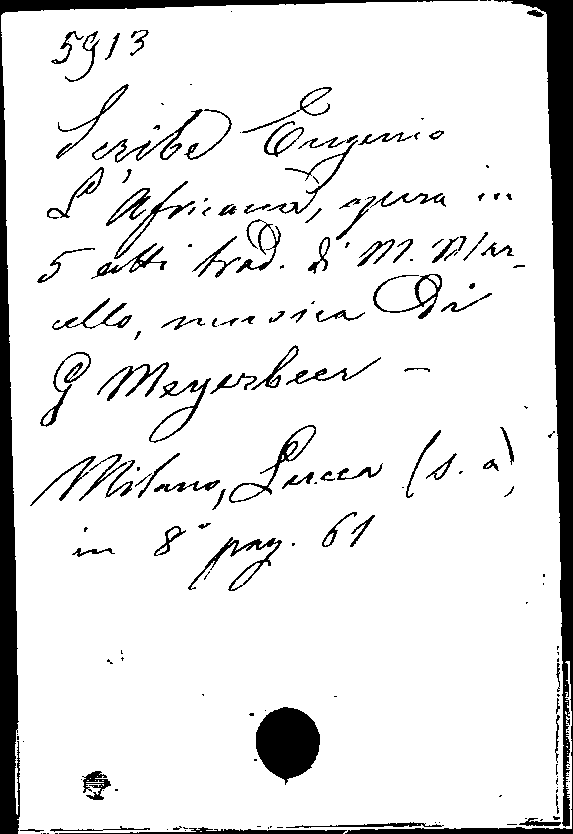 5913
Scribe Eugenio
L'Africana, opera in
5 atti trad. di M. Mar-
cello, musica di
G Meyerbeer -
Milano, Lucca (s. a),
in 8° pag. 61